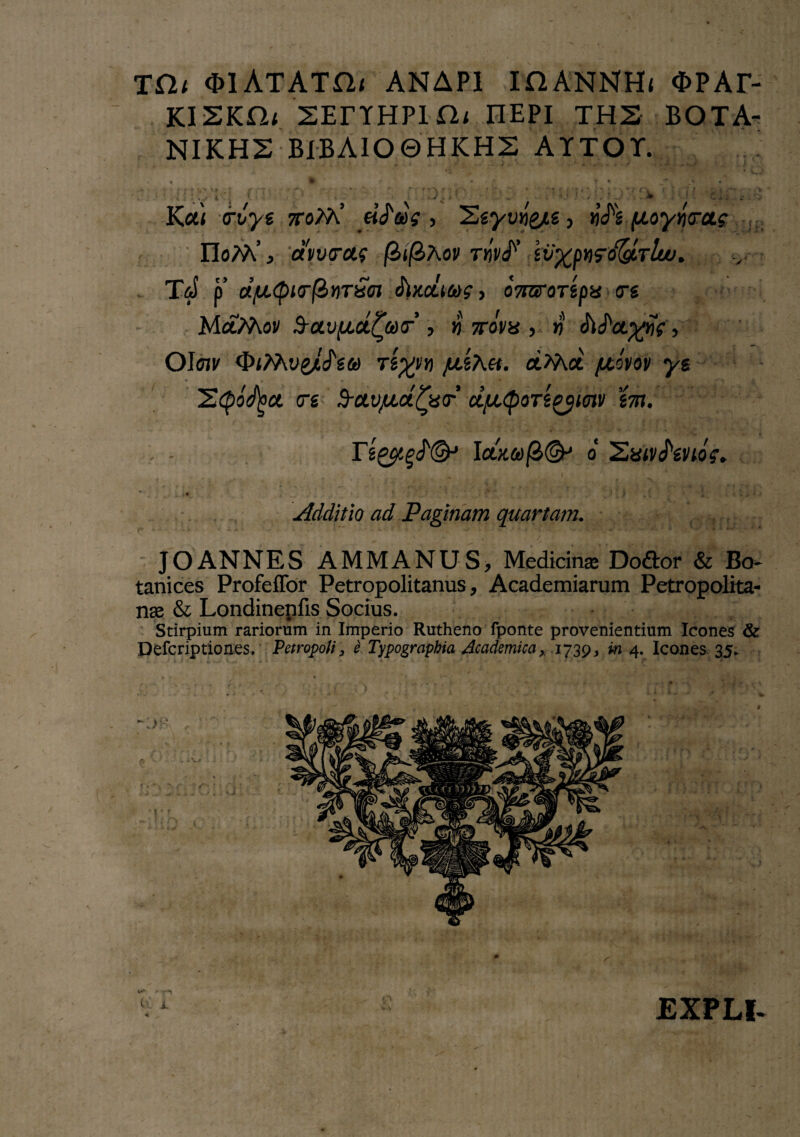 ΤΩι ΦΙΛΤΑΤΩι ΑΝΔΡΙ ΙΩΑΝΝΗι ΦΡΑΓ-
ΚΙΣΚΩι ΣΕΓΥΗΡΙΩι ΠΕΡΙ ΤΗΣ ΒΟΤΑ-
ΝΙΚΗΣ ΒΙΒΛΙΟΘΗΚΗΣ ΑΥΤΟΥ.
Καὶ σύγε πολλ' εἰδὼς, Σεγυήριε, ἠδὲ μογήσας
Πολλ', ἀνυσας βίβλον τήνδ' εὐχρηστοδάτην.
Τῷ ῥ' ἀμφισβητοῦσι δικαίως, ὁπποτέρου σε
Μᾶλλον θαυμάζωσ', ἢ πόνου, ἢ διδαχῆς,
Οἷσιν Φιλλυριδέω τέχνη μέλει. ἀλλὰ μόνον γε
Σφόδρα σε θαυμάζουσ' ἀμφοτέροισιν ἔπι.
Γέραρδος Ἰάκωβος ὁ Σουινδένιός.
Additio ad Paginam quartam.
JOANNES AMMANUS, Medicinæ Doctor & Bo-
tanices Professor Petropolitanus, Academiarum Petropolita-
næ & Londinensis Socius.
Stirpium rariorum in Imperio Rutheno sponte provenientium Icones &
Descriptiones. Petropoli, è Typographia Academica, 1739, in 4. Icones 35.
EXPLI-